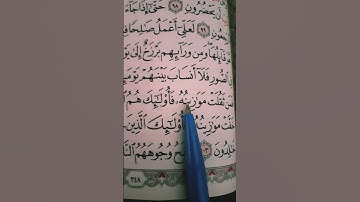 يَحْضُرُونِ ٩٨ حَتَّىٰٓ إِذَا جَآءَ
جِعُونِ ٩٩ لَعَلِّىٓ أَعْمَلُ صَٰلِحًا
قَآئِلُهَا وَمِن وَرَآئِهِم بَرْزَخٌ إِلَىٰ
ٱلصُّورِ فَلَآ أَنسَابَ بَيْنَهُمْ
فَمَن ثَقُلَتْ مَوَٰزِينُهُۥ فَأُو۟لَٰٓئِكَ هُمُ
خَفَّتْ مَوَٰزِينُهُۥ فَأُو۟لَٰٓئِكَ ٱلَّذِينَ
خَٰلِدُونَ ١٠٣ وُجُوهَهُمُ
٣٤٨